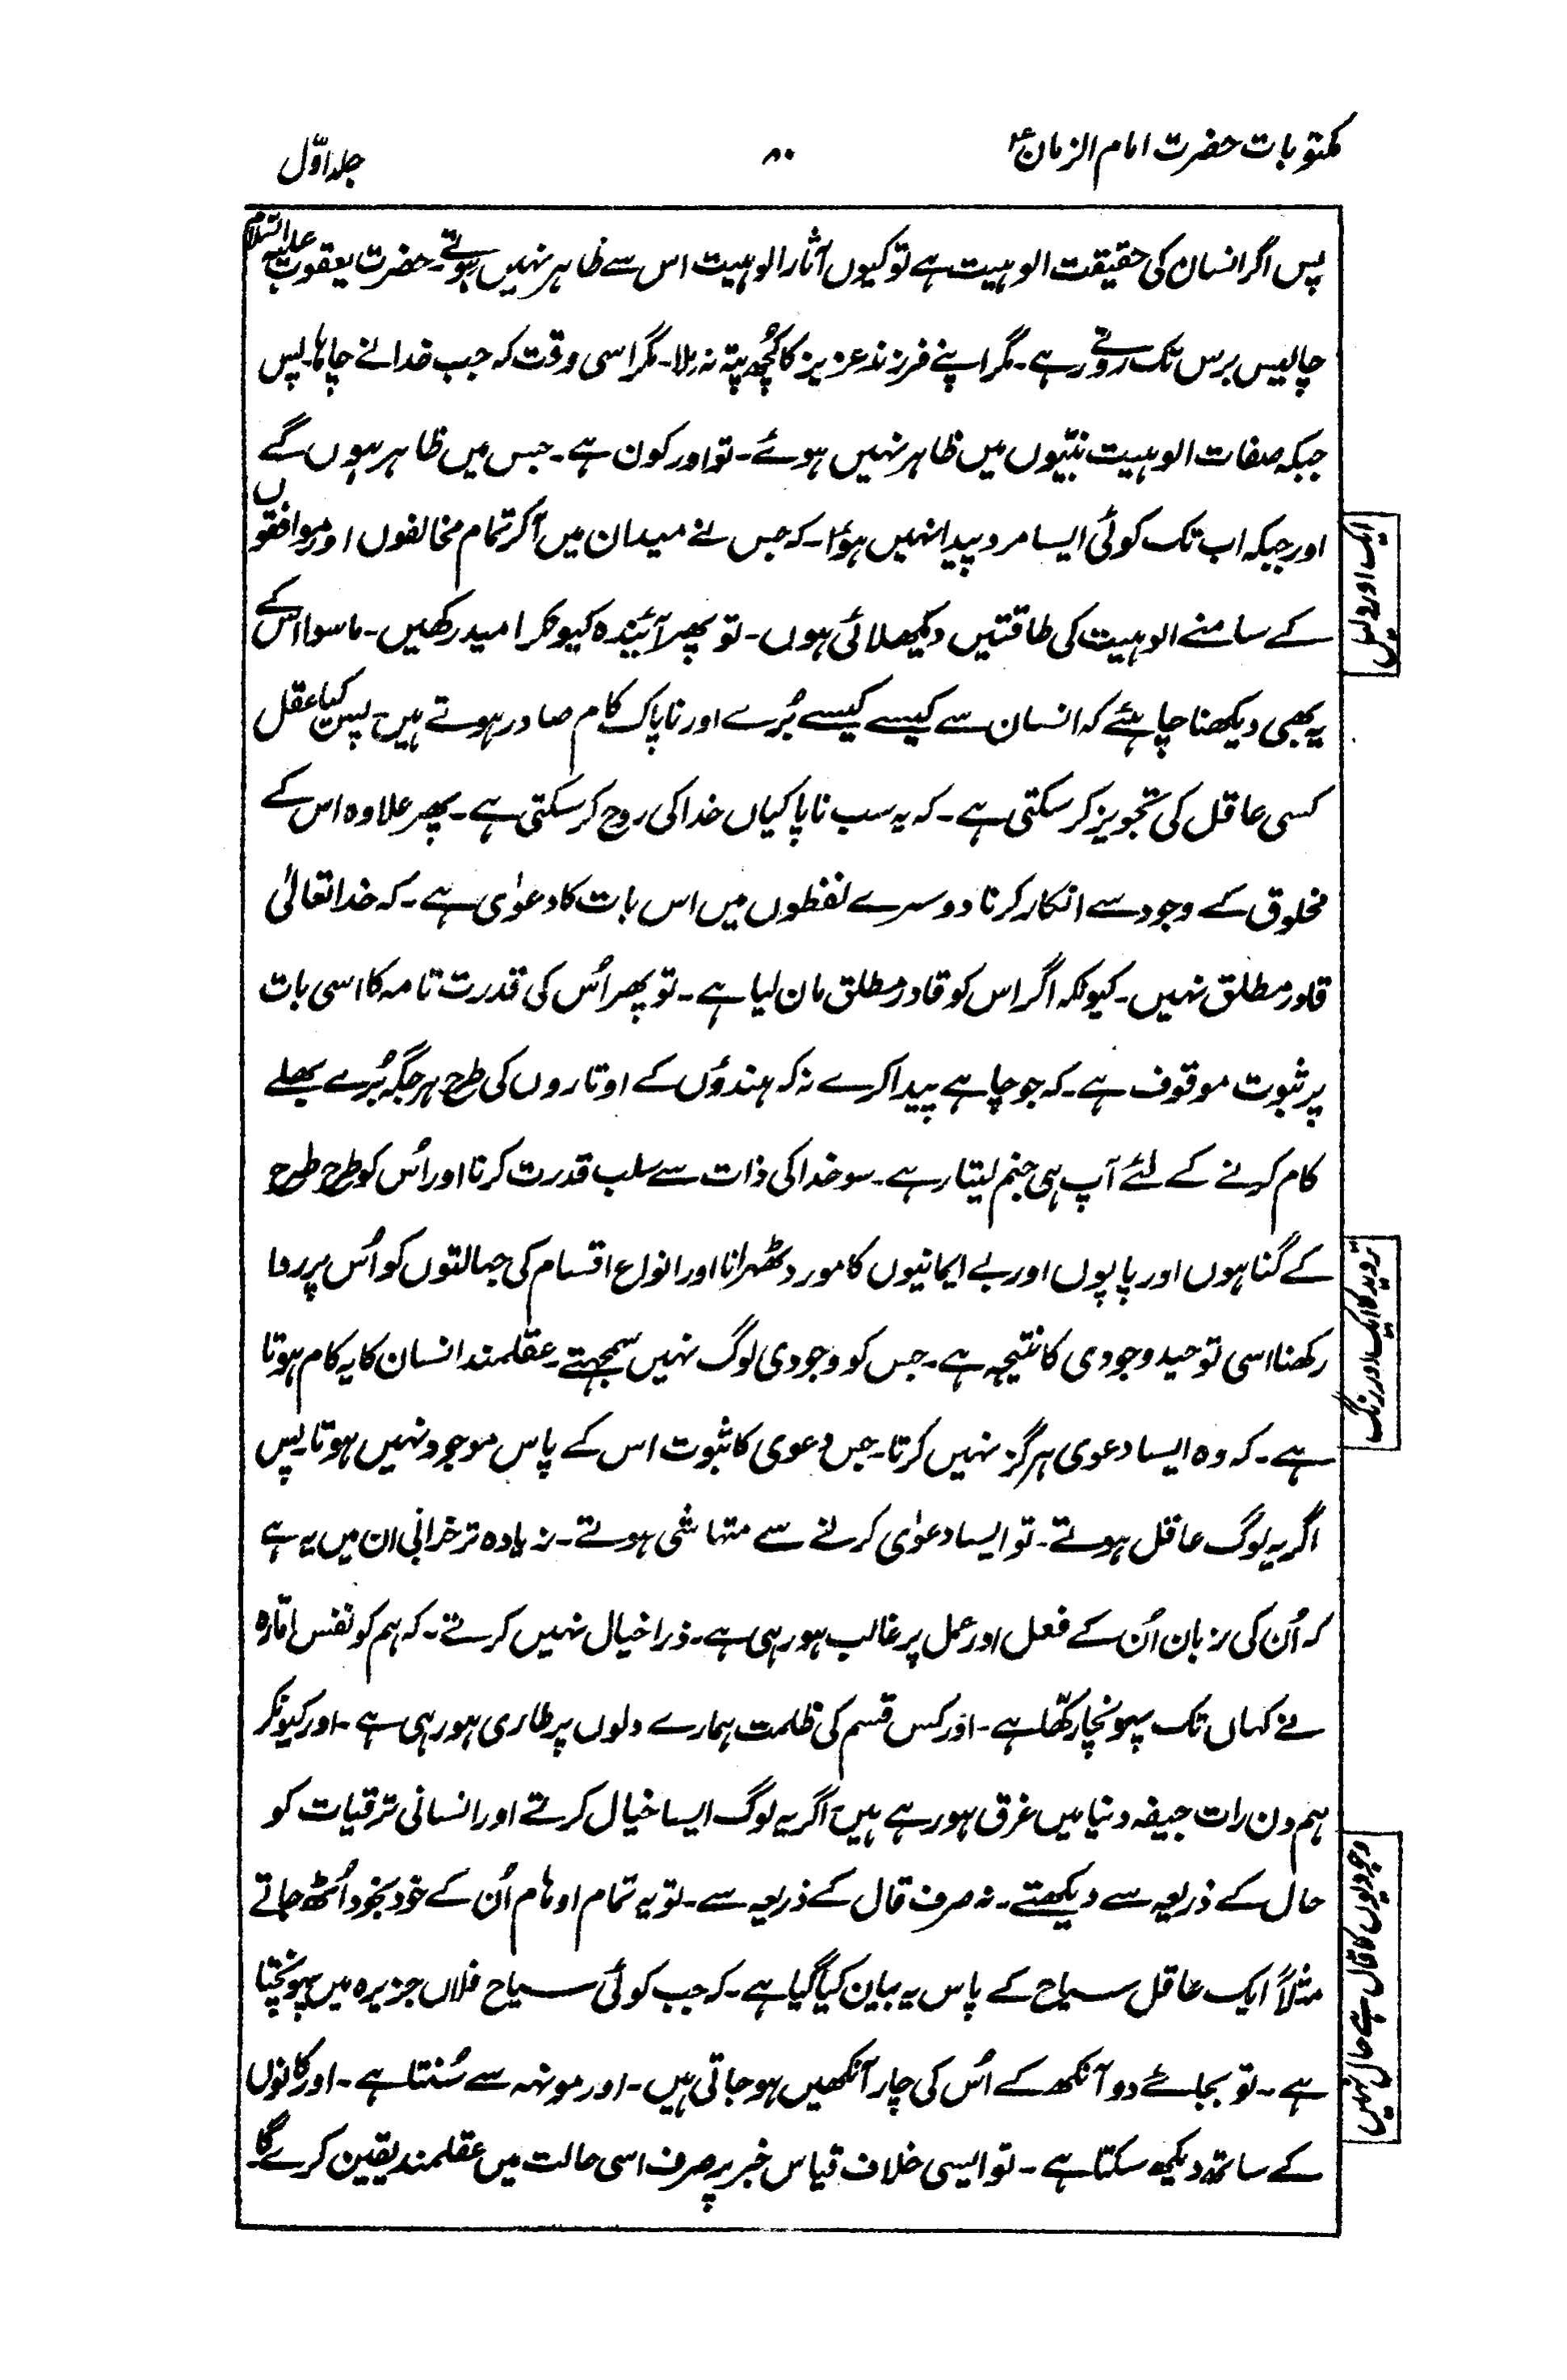 مکتوبات حضرت امام الزمانؑ
۸۰
جلد اوّل
پس اگر انسان کی حقیقت الوہیت ہے تو کیوں آثار الوہیت اس سے ظاہر نہیں ہوتے۔ حضرت یعقوب علیہ السلام
چالیس برس تک روتے رہے۔ مگر اپنے فرزند عزیز کا کچُھ پتہ نہ ملا۔ مگر اسی وقت کہ جب خدا نے چاہا۔ پس
جبکہ صفات الوہیت نبیّوں میں ظاہر نہیں ہوئے۔ تو اور کون ہے۔ جس میں ظاہر ہوں گے
اور جبکہ اب تک کوئی ایسا مرد پیدا نہیں ہؤا۔ کہ جس نے میدان میں آکر تمام مخالفوں اور موافقوں
کے سامنے الوہیت کی طاقتیں دیکھلائی ہوں۔ تو پھر آئیندہ کیونکر امید رکھیں۔ ماسوا اس کے
یہ بھی دیکھنا چاہئے کہ انسان سے کیسے کیسے بُرے اور ناپاک کام صادر ہوتے ہیں۔ پس کیا عقل
کسی عاقل کی تجویز کر سکتی ہے۔ کہ یہ سب ناپاکیاں خدا کی روح کر سکتی ہے۔ پھر علاوہ اس کے
مخلوق کے وجود سے انکار کرنا دوسرے لفظوں میں اس بات کا دعوٰی ہے۔ کہ خدا تعالیٰ
قادر مطلق نہیں۔ کیونکہ اگر اس کو قادر مطلق مان لیا ہے۔ تو پھر اُس کی قدرت تامہ کا اسی بات
پر ثبوت موقوف ہے۔ کہ جو چاہے پیدا کرے نہ کہ ہندؤں کے اوتاروں کی طرح ہر جگہ بُرے بھلے
کام کرنے کے لئے آپ ہی جنم لیتا رہے۔ سو خدا کی ذات سے سلب قدرت کرنا اور اُس کو طرح طرح
کے گناہوں اور پاپوں اور بے ایمانیوں کا مورد ٹھہرانا اور انواع اقسام کی جہالتوں کو اُس پر روا
رکھنا اسی توحید وجودی کا نتیجہ ہے۔ جس کو وجودی لوگ نہیں سمجہتے۔ عقلمند انسان کا یہ کام ہوتا
ہے۔ کہ وہ ایسا دعوی ہرگز نہیں کرتا۔ جس دعوی کا ثبوت اس کے پاس موجود نہیں ہوتا۔ پس
اگر یہ لوگ عاقل ہوتے۔ تو ایسا دعوٰی کرنے سے متہاشی ہوتے۔ زیادہ تر خرابی ان میں یہ ہے
کہ اُن کی زبان اُن کے فعل اور عمل پر غالب ہو رہی ہے۔ ذرا خیال نہیں کرتے۔ کہ ہم کو نفس امّارہ
نے کہاں تک پہونچا رکھّا ہے۔ اور کس قسم کی ظلمت ہمارے دلوں پر طاری ہو رہی ہے۔ اور کیونکر
ہم دن رات جیفہ دنیا میں غرق ہو رہے ہیں۔ اگر یہ لوگ ایسا خیال کرتے اور انسانی ترقیات کو
حال کے ذریعہ سے دیکھتے۔ نہ صرف قال کے ذریعہ سے۔ تو یہ تمام اوہام اُن کے خود بخود اُٹھ جاتے
مثلاً ایک عاقل سیاح کے پاس یہ بیان کیا گیا ہے۔ کہ جب کوئی سیاح فلاں جزیرہ میں پہونچتا
ہے۔ تو بجائے دو آنکھ کے اُس کی چار آنکھیں ہو جاتی ہیں۔ اور مونہہ سے سُنتا ہے۔ اور کانوں
کے ساتھ دیکھ سکتا ہے۔ تو ایسی خلاف قیاس خبر پر صرف اسی حالت میں عقلمند یقین کرے گا۔
ایک اور دلیل
تردید کا ایک اور رنگ
وجودیوں کا قال ہے حال نہیں